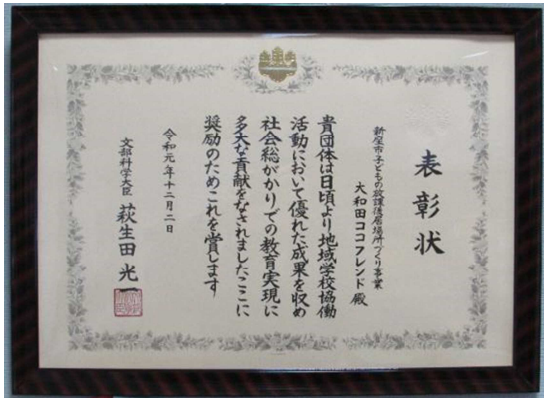 表彰状
新座市子どもの放課後居場所づくり事業
大和田ココフレンド 殿
貴団体は日頃より地域学校協働
活動において優れた成果を収め
社会総がかりでの教育実現に
多大な貢献をなされましたここに
奨励のためこれを賞します
令和元年十二月二日
文部科学大臣 萩生田光一